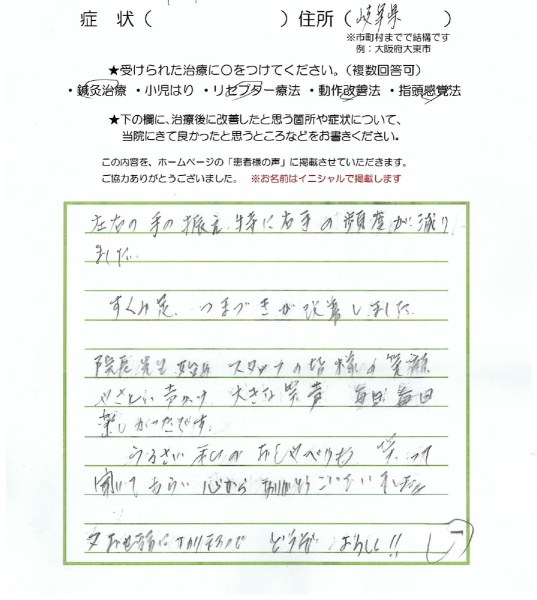 症 状 （　　　　　　　） 住所 （岐阜県　　）
※市町村までで結構です
例：大阪府大東市
★受けられた治療に〇をつけてください。（複数回答可）
・鍼灸治療 ・小児はり ・リセプター療法 ・動作改善法 ・指頭感覚法
★下の欄に、治療後に改善したと思う箇所や症状について、
当院にきて良かったと思うところなどをお書きください。
この内容を、ホームページの「患者様の声」に掲載させていただきます。
ご協力ありがとうございました。 ※お名前はイニシャルで掲載します
左右の手の振え 特に右手の頻度が減り
ました。
すくみ足、つまづきが改善しました。
院長先生始め スタッフの皆様の笑顔
やさしい声かけ 大きな笑声 毎日毎日
楽しかったです。
うるさい私のおしゃべりも 笑って
聞いてもらい 心から ありがとうございました
又お世話に どうぞ よろしく!!